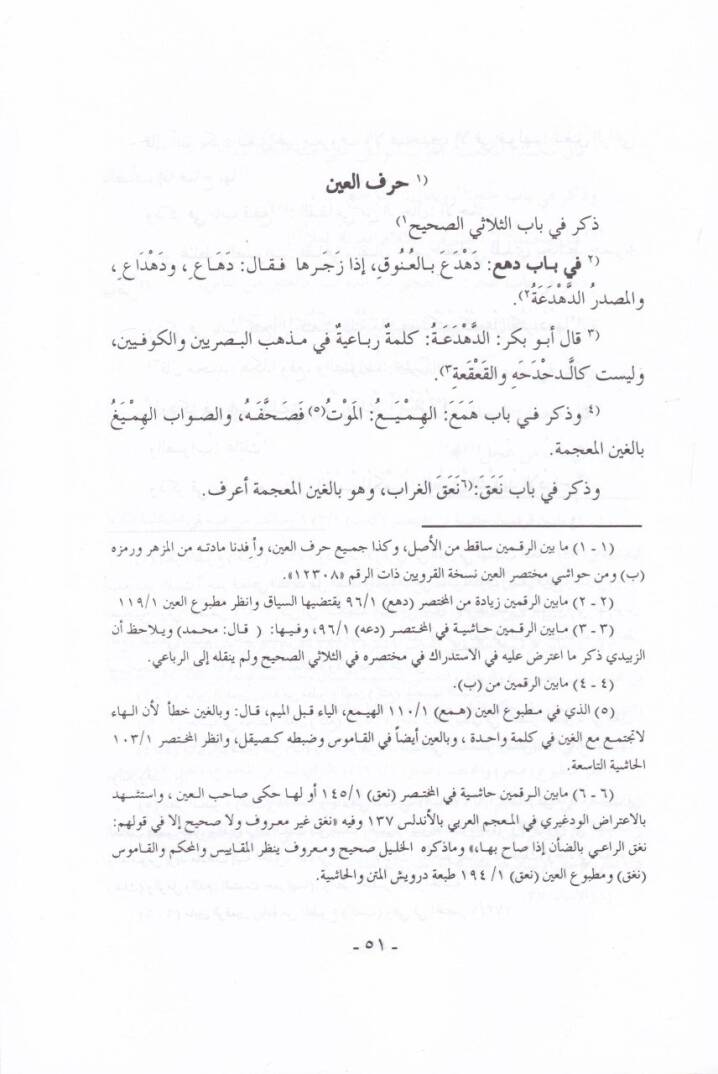 (١ حرف العين
ذكر في باب الثلاثي الصحيح١)
(٢ في باب دهع: دَهْدَعَ بالعُنُوقِ، إذا زَجَرها فقال: دَهَاعِ، ودَهْدَاعِ،
والمصدرُ الدَّهْدَعَةُ٢).
(٣ قال أبو بكر: الدَّهْدَعَةُ: كلمةٌ رباعيةٌ في مذهب البصريين والكوفيين،
وليست كالدحْدَحَهِ والقَعْقَعةِ٣).
(٤ وذكر في باب هَمَعَ: الهِمْيَعُ: المَوْتُ(٥) فَصَحَّفَهُ، والصواب الهِمْيَغُ
بالغين المعجمة.
وذكر في باب نَعَقَ:(٦نَعَقَ الغراب، وهو بالغين المعجمة أعرف.
(١ - ١) ما بين الرقمين ساقط من الأصل، وكذا جميع حرف العين، وأفدنا مادته من المزهر ورمزه
(ب) ومن حواشي مختصر العين نسخة القرويين ذات الرقم «١٢٣٠٨».
(٢ - ٢) مابين الرقمين زيادة من المختصر (دهع) ٩٦/١ يقتضيها السياق وانظر مطبوع العين ١١٩/١
(٣ - ٣) مابين الرقمين حاشية في المختصر (دعه) ٩٦/١، وفيها: ( قال: محمد) ويلاحظ أن
الزبيدي ذكر ما اعترض عليه في الاستدراك في مختصره في الثلاثي الصحيح ولم ينقله إلى الرباعي.
(٤ - ٤) مابين الرقمين من (ب).
(٥) الذي في مطبوع العين (همع) ١١٠/١ الهيمع، الياء قبل الميم، قال: وبالغين خطأ لأن الهاء
لاتجتمع مع الغين في كلمة واحدة ، وبالعين أيضاً في القاموس وضبطه كصيقل، وانظر المختصر ١٠٣/١
الحاشية التاسعة.
(٦ - ٦) مابين الرقمين حاشية في المختصر (نعق) ١٤٥/١ أولها حكى صاحب العين ، واستشهد
بالاعتراض الودغيري في المعجم العربي بالأندلس ١٣٧ وفيه «نغق غير معروف ولا صحيح إلا في قولهم:
نغق الراعي بالضأن إذا صاح بها،» وماذكره الخليل صحيح ومعروف ينظر المقاييس والمحكم والقاموس
(نغق) ومطبوع العين (نعق) ١/ ١٩٤ طبعة درويش المتن والحاشية.
- ٥١ -